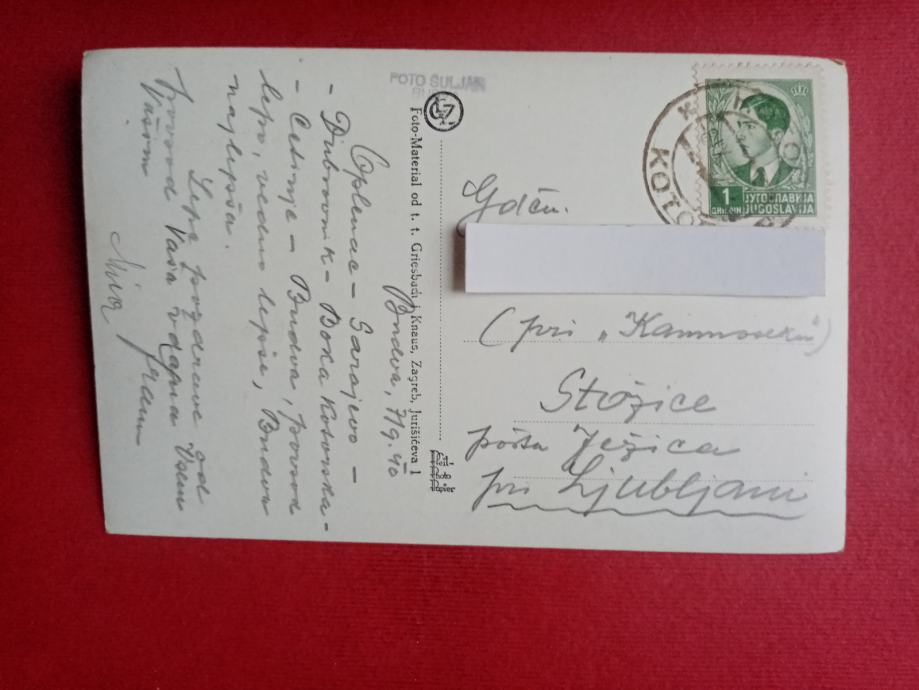 Budva, 7/9.40
Oplenac – Sarajevo –
- Dubrovnik – Boka Kotorska -
- Cetinje – Budva, povsod
lepo, vedno lepše, Budva
najlepša.
Lepe pozdrave od
povsod Vaša vdana Vsem
Vašim
FOTO SULJAR
Foto-Material od t. t. Griesbach i Knaus, Zagreb, Jurišićeva 1
Gdčn.
(pri „Kamnoseku")
Stožice
pošta Ježica
pri Ljubljani
KOTOR
1
ДИНАР DIN
ЈУГОСЛАВИЈА
JUGOSLAVIJA